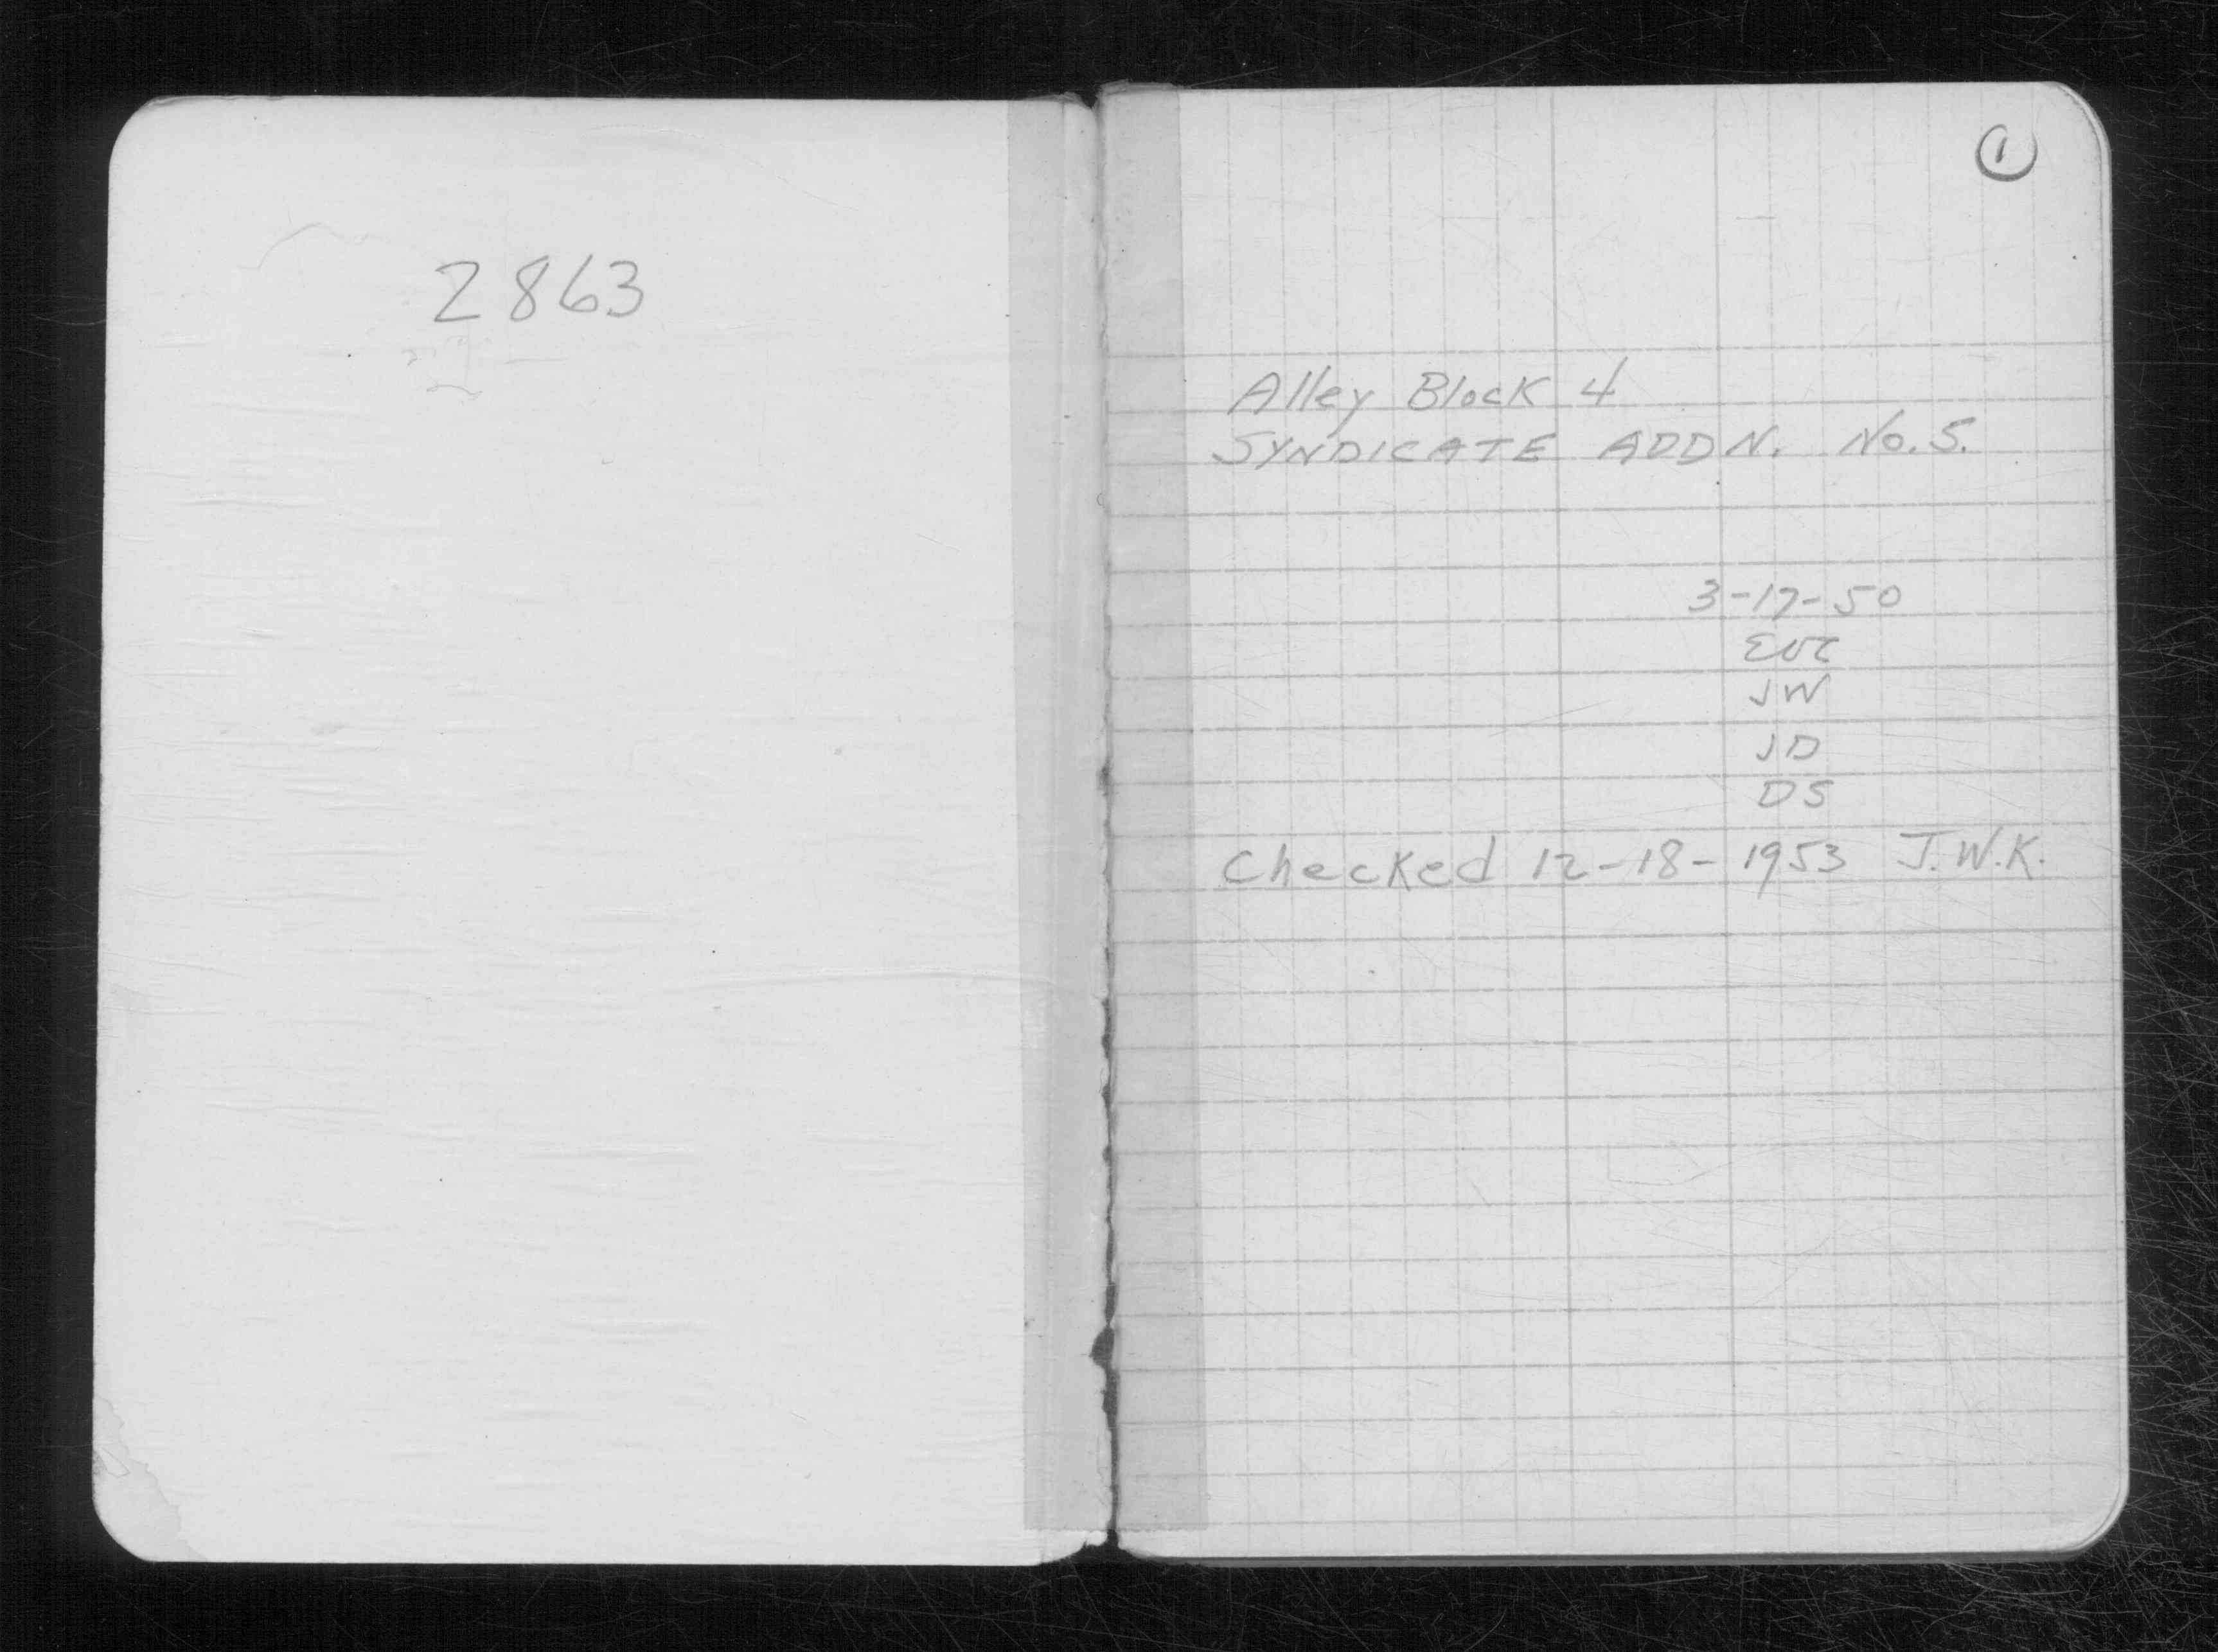 2863
1
Alley Block 4
SYNDICATE ADDN. No. 5.
3-17-50
JW
JD
DS
Checked 12-18-1953 J.W.K.